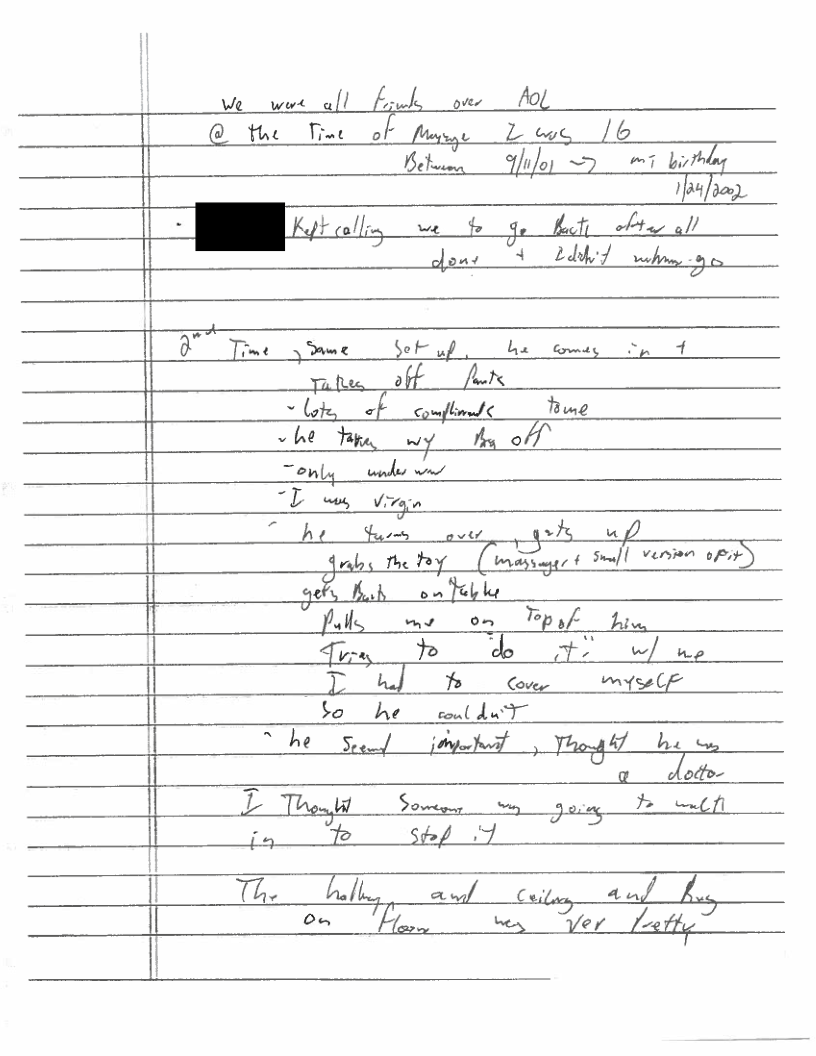 We were all friends over AOL
@ the Time of Massage I was 16
Between 9/11/01 → my birthday
1/24/2002
· Kept calling me to go Back after all
done + I didn't go
2nd Time, Same set up, he comes in +
Takes off Pants
- lots of compliments to me
- he takes my Bra off
- only underwear
- I was virgin
- he turns over, gets up
grabs the toy (massager + small version of it)
gets Back on table
Pulls me on Top of him
Tries to "do it" w/ me
I had to cover myself
So he couldn't
- he seemed important, Thought he was
a doctor
I Thought Someone was going to walk
in to stop it
The hallway and ceiling and Rug
on floor was ver Pretty